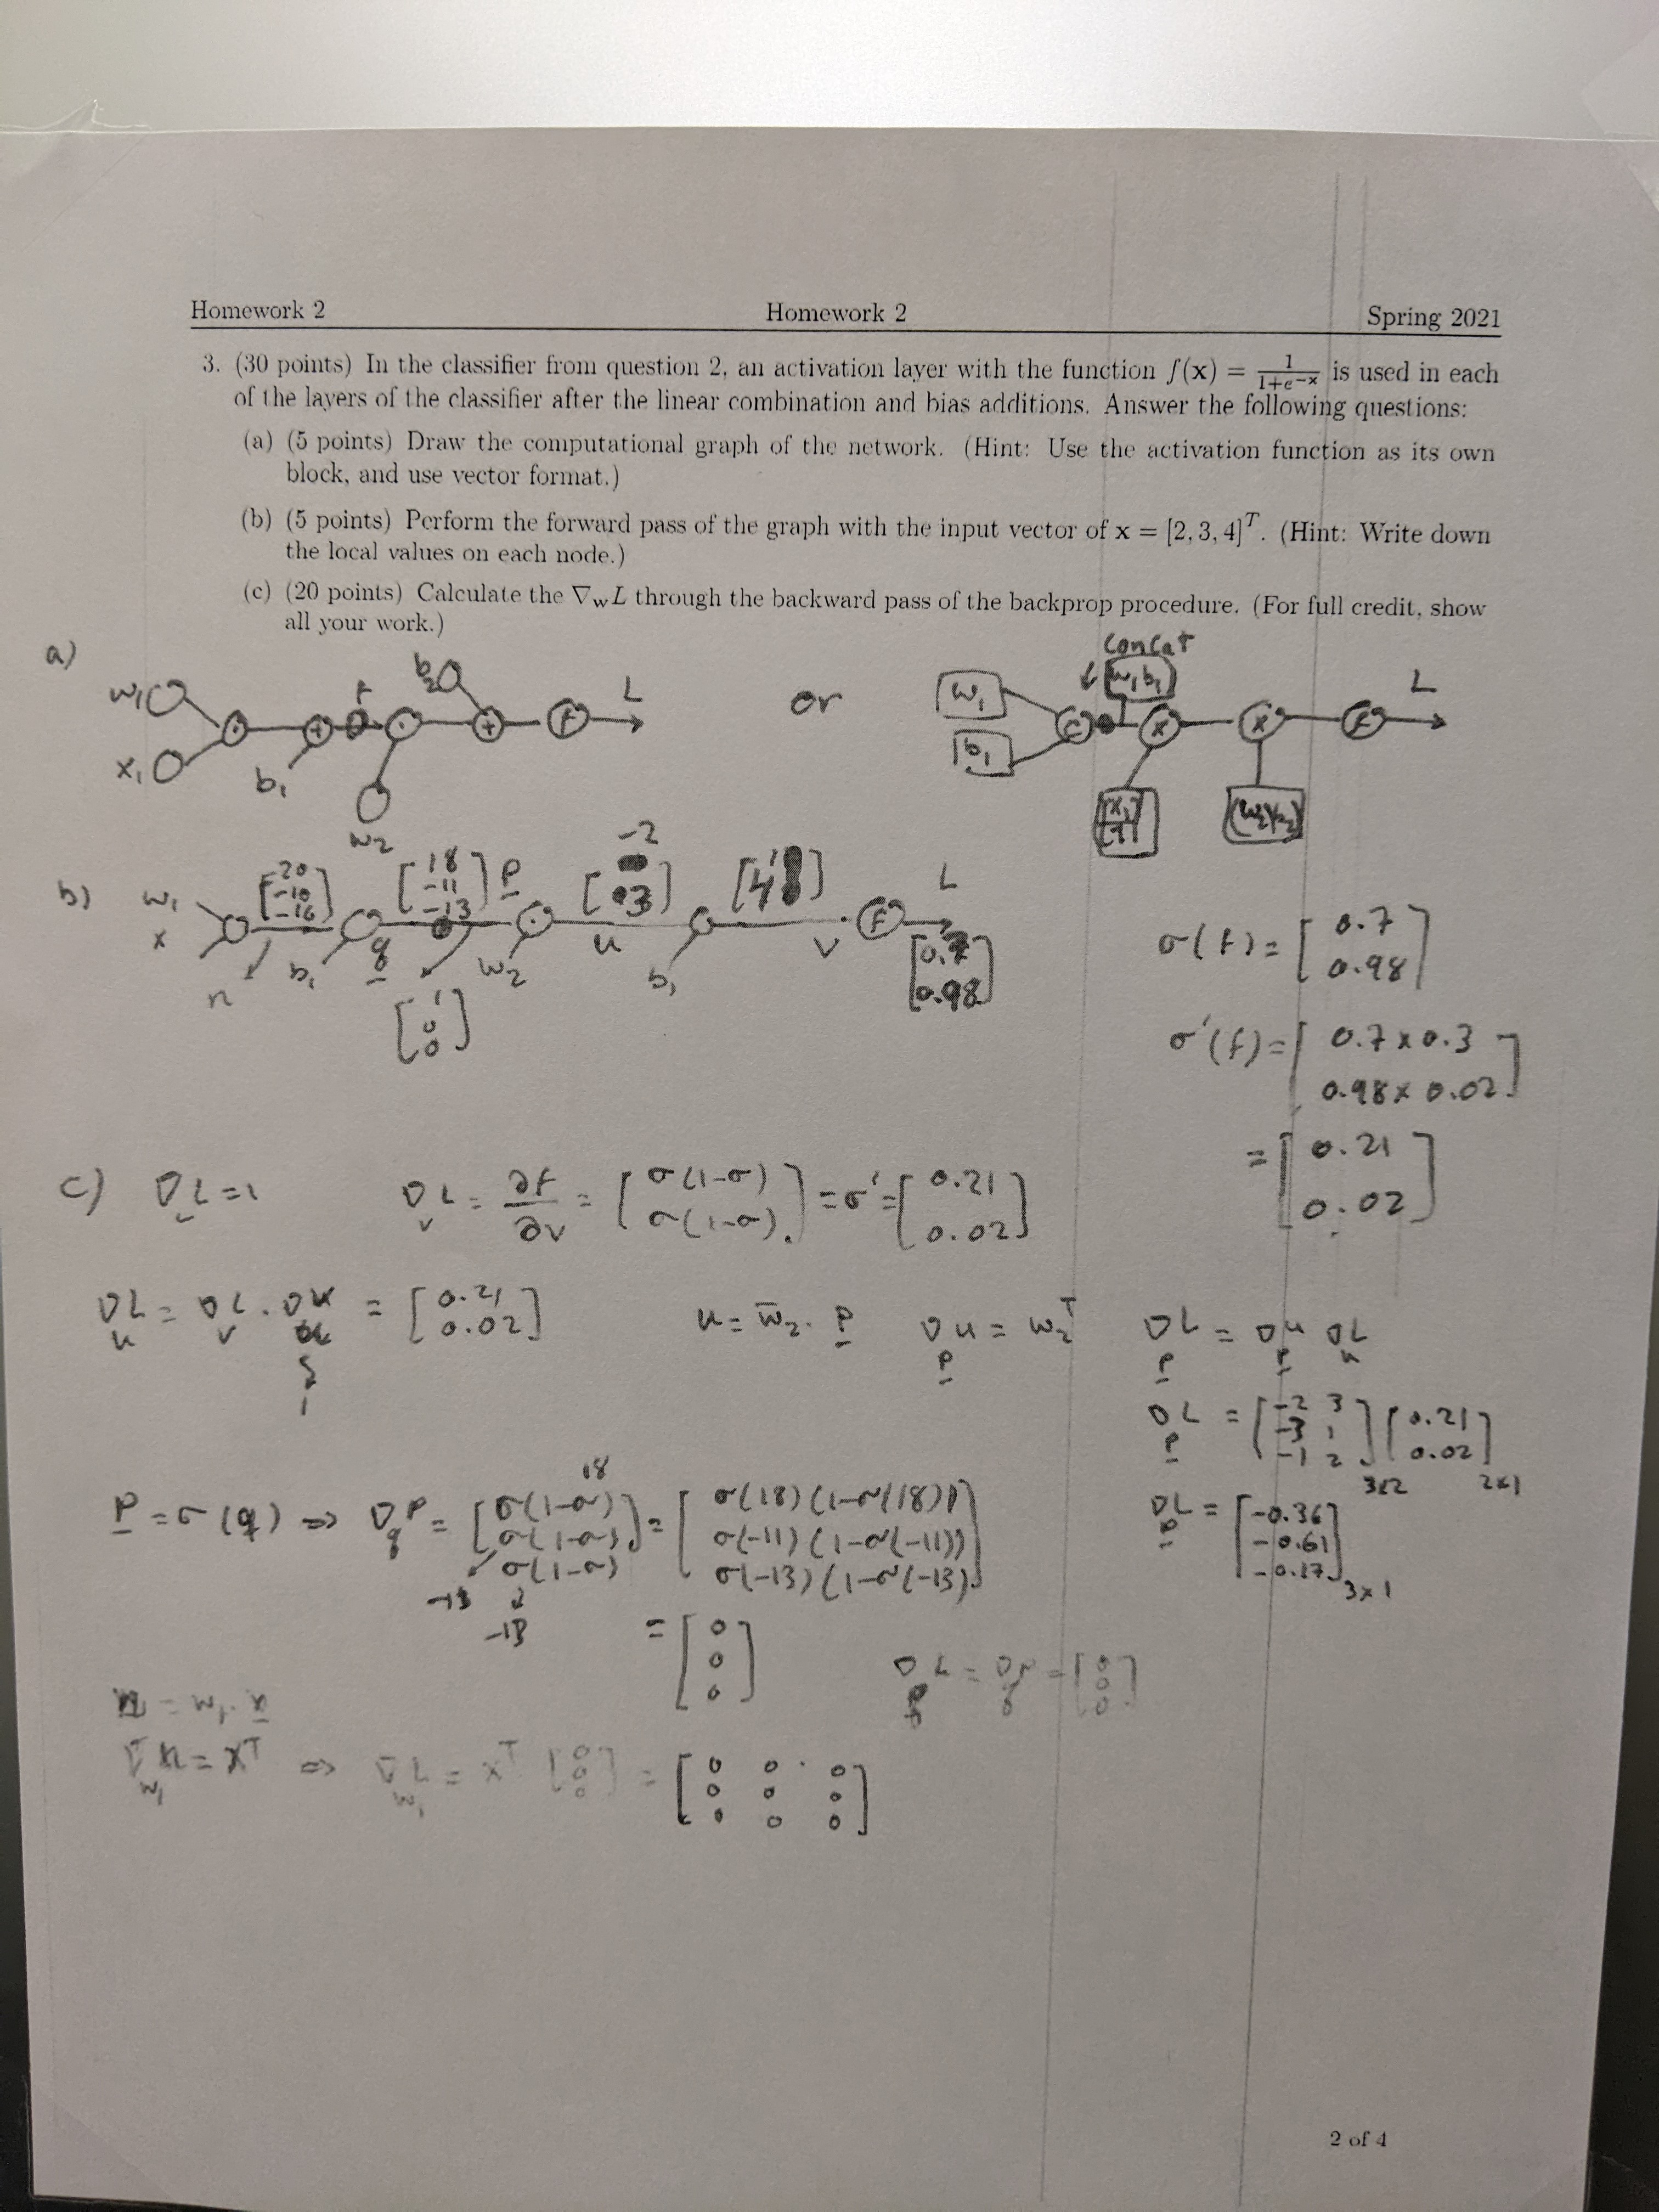 Homework 2 Homework 2 Spring 2021
3. (30 points) In the classifier from question 2, an activation layer with the function f(x) = 1/(1+e^{-x}) is used in each
of the layers of the classifier after the linear combination and bias additions. Answer the following questions:
(a) (5 points) Draw the computational graph of the network. (Hint: Use the activation function as its own
block, and use vector format.)
(b) (5 points) Perform the forward pass of the graph with the input vector of x = [2, 3, 4]^T. (Hint: Write down
the local values on each node.)
(c) (20 points) Calculate the ∇_w L through the backward pass of the backprop procedure. (For full credit, show
all your work.)
a)
w₁ x₁ · + b₁ f · w₂ b₂ + F L
or
w₁ b₁ C concat w₁b₁ x x F L
b)
w₁ x [20 -10 -16] n b₁ q [18 -11 -13] p [1 0 0] w₂ u [-2 3] b₁ v F L [0.7 0.98]
σ(f) = [0.7 0.98]
σ'(f) = [0.7 x 0.3 0.98 x 0.02]
= [0.21 0.02]
c) ∇L = 1 ∇_v L = ∂F/∂v = [σ(1-σ) σ(1-σ)] = σ' = [0.21 0.02]
∇_u L = ∇_v L . ∇u = [0.21 0.02]
1
u = w̄₂ . p ∇_p u = w₂^T ∇_p L = ∇_p u ∇_u L
∇_p L = [-2 3 -3 1 -1 2] 3x2 [0.21 0.02] 2x1
∇_p L = [-0.36 -0.61 -0.17] 3x1
p = σ(q) ⇒ ∇_q p = [σ(1-σ) σ(1-σ) σ(1-σ)] = [σ(18)(1-σ(18)) σ(-11)(1-σ(-11)) σ(-13)(1-σ(-13))]
18
-13
= [0 0 0]
∇L = ∇_q p = [0 0 0]
n = w₁ . x
∇_w₁ n = x^T ⇒ ∇_w₁ L = x^T [0 0 0] = [0 0 0 0 0 0 0 0 0]
2 of 4